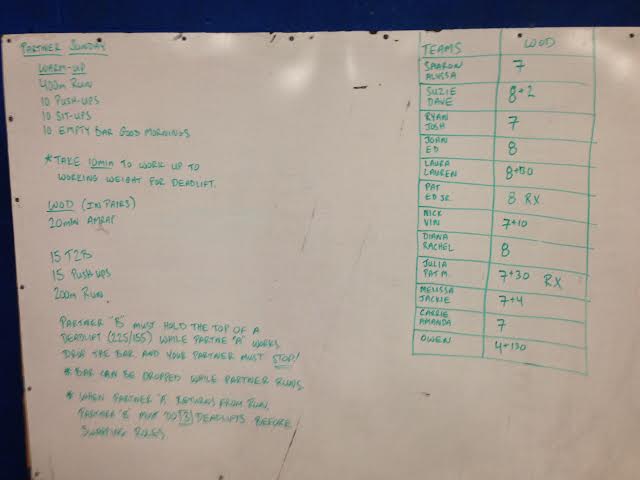 PARTNER SUNDAY
WARM-UP
400m RUN
10 PUSH-UPS
10 SIT-UPS
10 EMPTY BAR GOOD MORNINGS
*TAKE 10min TO WORK UP TO
WORKING WEIGHT FOR DEADLIFT.
WOD (IN PAIRS)
20min AMRAP
15 T2B
15 PUSH UPS
200m RUN
PARTNER "B" MUST HOLD THE TOP OF A
DEADLIFT (225/155) WHILE PARTNE "A" WORKS
DROP THE BAR AND YOUR PARTNER MUST STOP!
* BAR CAN BE DROPPED WHILE PARTNER RUNS.
* WHEN PARTNER "A" RETURNS FROM RUN,
PARTNER "B" MUST DO 3 DEADLIFTS BEFORE
SWAPPING ROLES
TEAMS WOD
SHARON
ALYSSA 7
SUZIE
DAVE 8+2
RYAN
JOSH 7
JOHN
ED 8
LAURA
LAUREN
PAT
ED SR. 8 RX
NICK
VIN 7+10
DIANA
RACHEL 8
JULIA
PAT M. 7+30 RX
MELISSA
JACKIE 7+4
CARRIE
AMANDA 7
OWEN 4+130